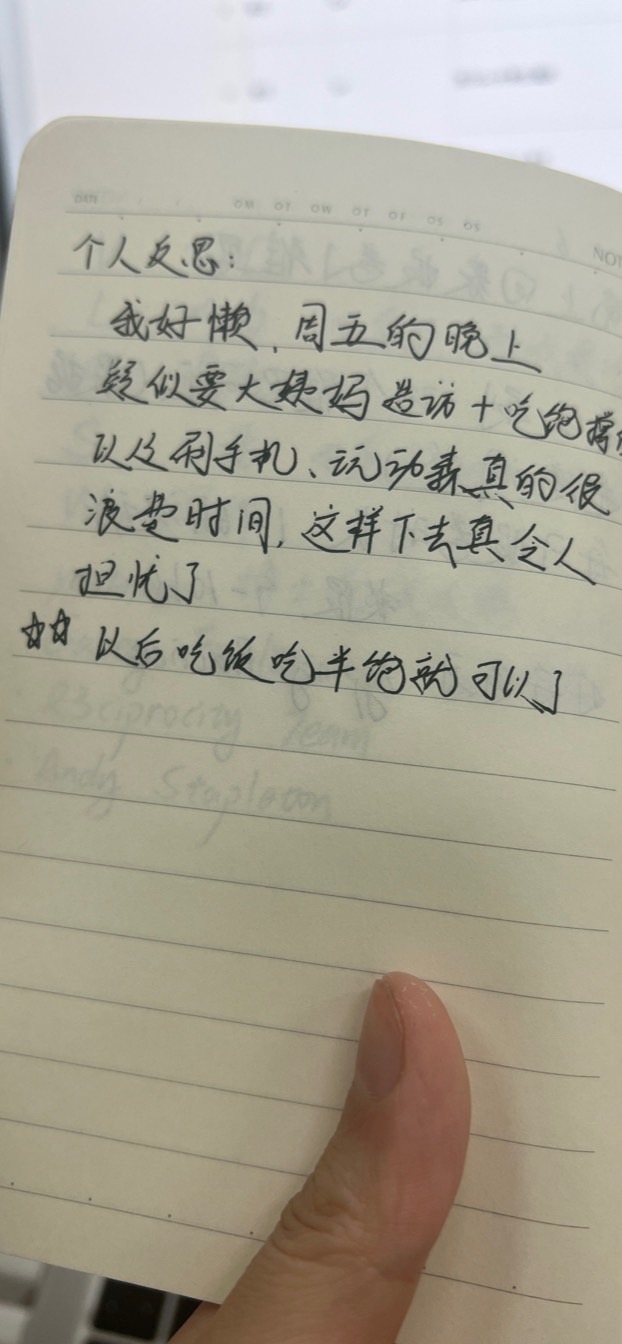 DATE
OM OT OW OT OF OS OS
NOT
个人反思:
我好懒,周五的晚上
疑似要大姨妈造访+吃饱撑
以及刷手机、玩动森真的很
浪费时间,这样下去真令人
担忧了
☆☆ 以后吃饭吃半饱就可以了
R3ciprocity Team
Andy Stapleton